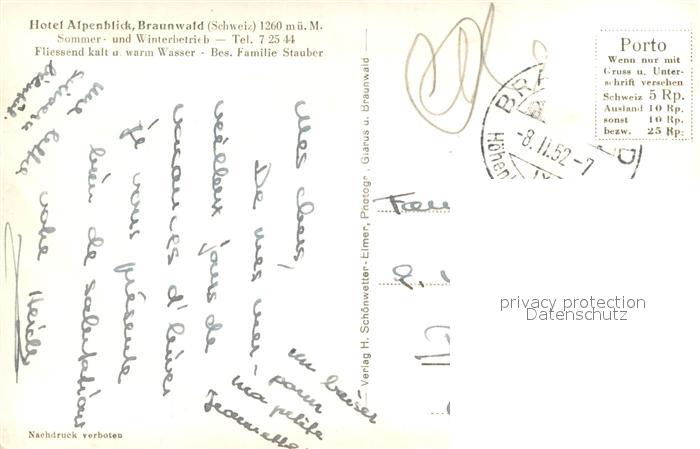 Hotel Alpenblick, Braunwald (Schweiz) 1260 m ü. M.
Sommer- und Winterbetrieb — Tel. 7 25 44
Fliessend kalt u. warm Wasser - Bes. Familie Stauber
Mes chers,
De mes mer-
veilleux jours de
vacances d'hiver
je vous présente
bien de salutations
et
votre Heidi
un baiser
pour
ma petite
Jeannette
Nachdruck verboten
Verlag H. Schönwetter-Elmer, Photogr., Glarus u. Braunwald
Porto
Wenn nur mit
Gruss u. Unter-
schrift versehen
Schweiz 5 Rp.
Ausland 10 Rp.
sonst 10 Rp.
bezw. 25 Rp.
BRA D
-8.II.52-7
Höhen
Fam
privacy protection
Datenschutz